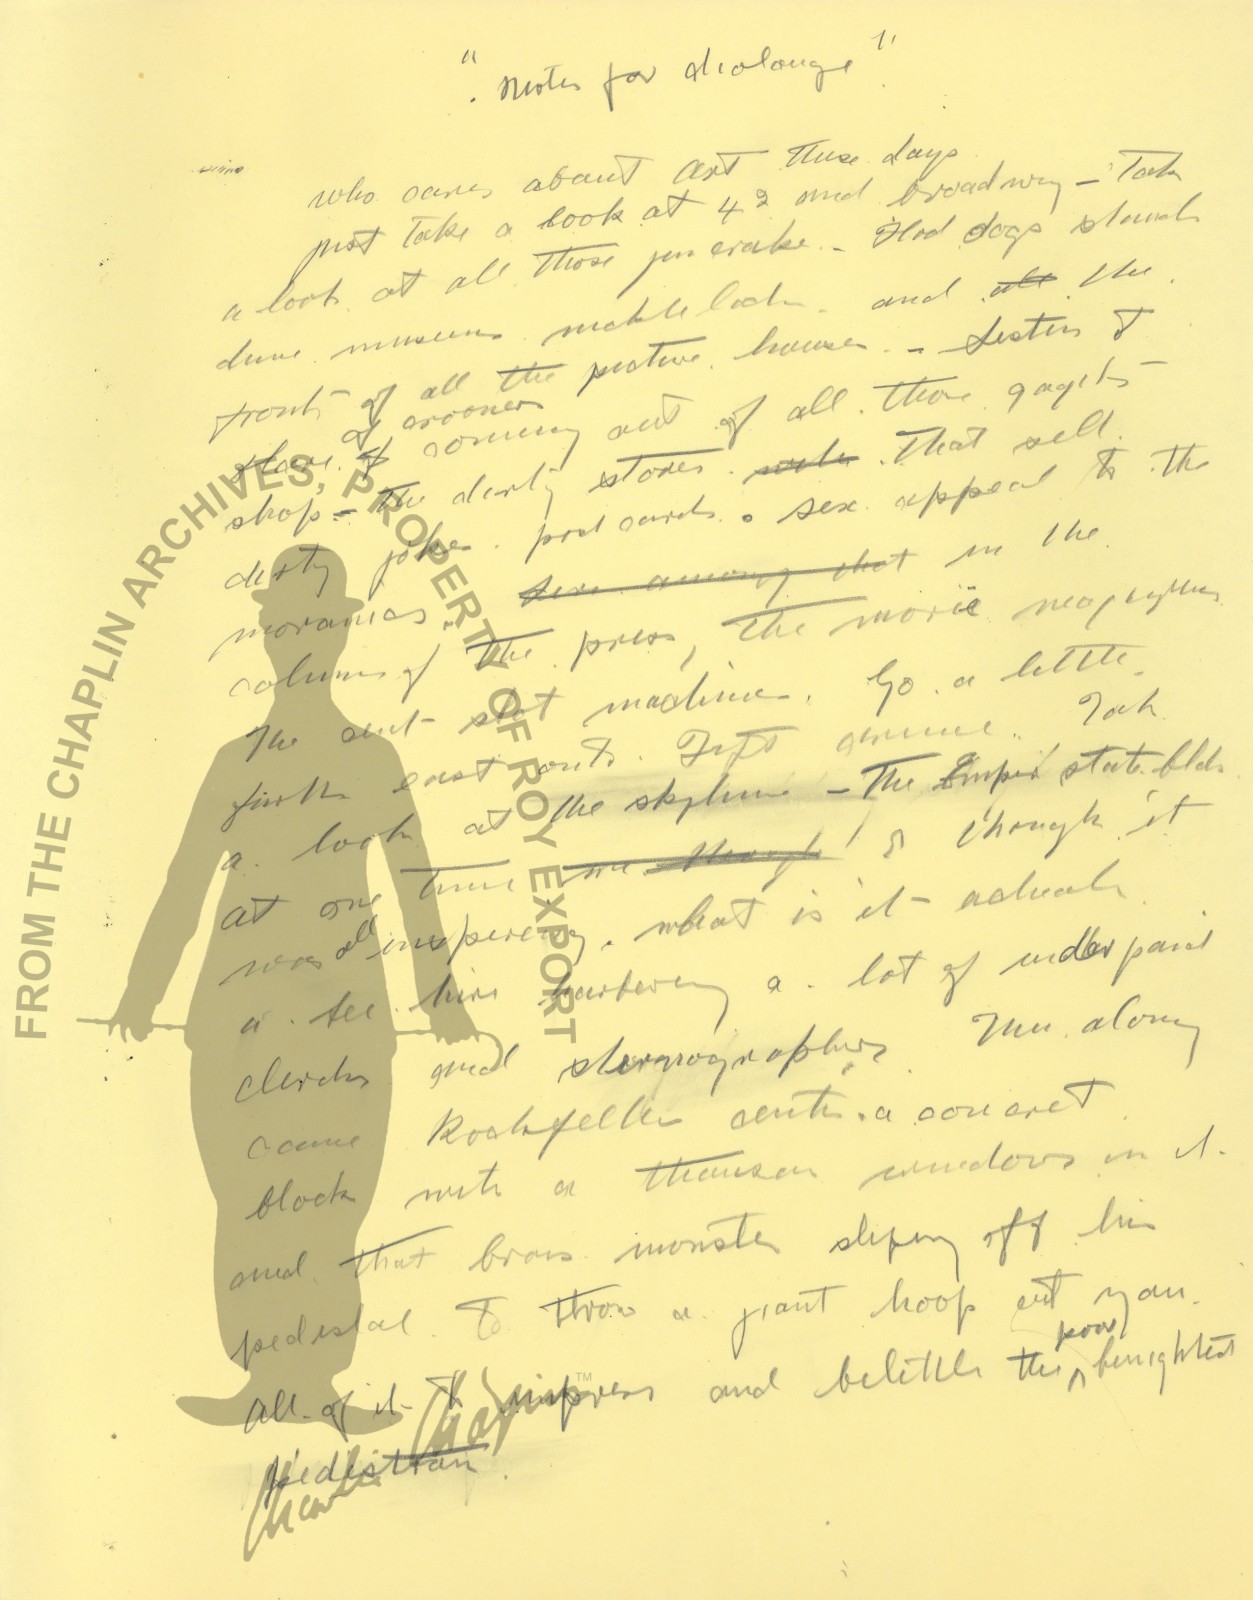 "Notes for dialouge"
who cares about art these days
just take a look at 42 and broadway - Take
a look at all those jim cracke - Hod dogs stands
dime museums and the
fronts of all the picture houses - Listen to
of crooners
coming out of all those gagets
shop - The dirty stores that sell
dirty jokes post cards. sex appeal to the
in the
columns of the press, The movie
The cent slot machines. Go a little
east onto Fift avenue. Take
a look at the skyline - The Empir state bld
at one time though it
was all inspireing. what is it actualy
a bee hive harbering a lot of underpaid
clerks and stenographers Then along
came Rockfeller center. a concret
block with a thousan windows in it.
and that brons monster sliping off his
pedistal to throw a giant hoop at you.
poor
All of it to impress and belittle the benighted
pedistrian.
FROM THE CHAPLIN ARCHIVES, PROPERTY OF ROY EXPORT
Charlie Chaplin™